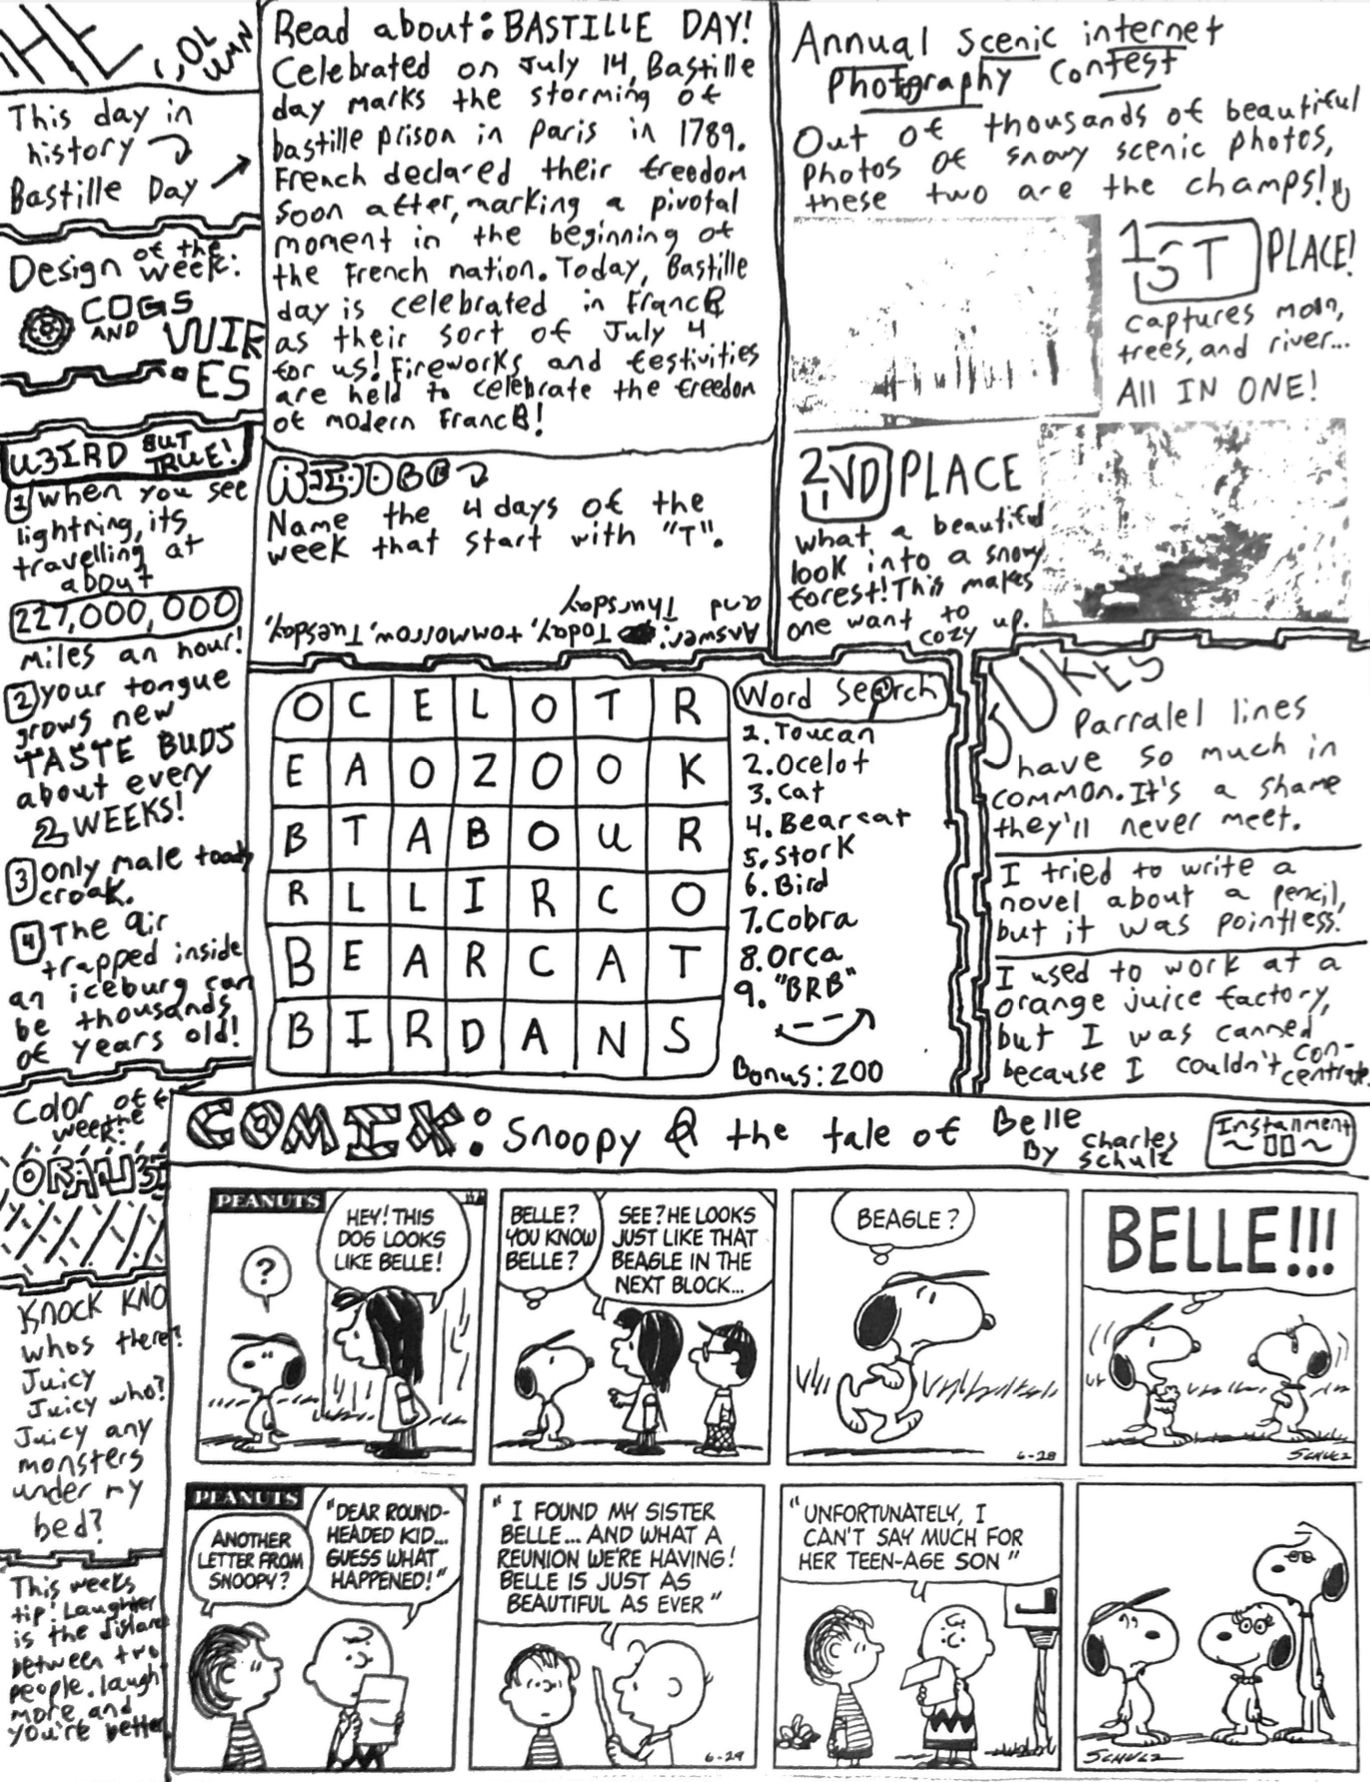 THE COLUMN
This day in
history
Bastille Day
Design of the
week:
COGS
AND
WIR
ES
W3IRD BUT
TRUE!
1 When you see
lightning, its
travelling at
about
227,000,000
miles an hour!
2 your tongue
grows new
TASTE BUDS
about every
2 WEEKS!
3 only male toads
croak.
4 The air
trapped inside
an iceburg can
be thousands
of years old!
Color of
the
week:
ORAN
KNOCK KNO
whos there?
Juicy
Juicy who?
Juicy any
monsters
under my
bed?
This weeks
tip! Laughter
is the distan
between two
people. laugh
more, and
you're better
Read about: BASTILLE DAY!
Celebrated on July 14, Bastille
day marks the storming of
bastille prison in Paris in 1789.
French declared their freedom
soon after, marking a pivotal
moment in the beginning of
the French nation. Today, Bastille
day is celebrated in France
as their sort of July 4
for us! Fireworks and festivities
are held to celebrate the freedom
of modern France!
Name the 4 days of the
week that start with "T".
Answer: Today, tommorrow, Tuesday,
and Thursday
Annual scenic internet
Photography contest
Out of thousands of beautiful
Photos of snowy scenic photos,
these two are the champs!
1ST PLACE!
captures moon,
trees, and river...
All IN ONE!
2ND PLACE
what a beautiful
look into a snowy
forest! This makes
one want to
cozy up.
O C E L O T R
E A O Z O O K
B T A B O U R
R L L I R C O
B E A R C A T
B I R D A N S
Word Search
1. Toucan
2. Ocelot
3. cat
4. Bearcat
5. stork
6. Bird
7. Cobra
8. Orca
9. "BRB"
Bonus: 200
JOKES
Parralel lines
have so much in
common. It's a shame
they'll never meet.
I tried to write a
novel about a pencil,
but it was pointless.
I used to work at a
orange juice factory,
but I was canned
because I couldn't con-
centrate.
COMIX: Snoopy & the tale of Belle
By Charles
Schulz
Installment
~II~
PEANUTS
?
HEY! THIS
DOG LOOKS
LIKE BELLE!
BELLE?
YOU KNOW
BELLE?
SEE? HE LOOKS
JUST LIKE THAT
BEAGLE IN THE
NEXT BLOCK...
BEAGLE?
6-28
BELLE!!!
SCHULZ
PEANUTS
ANOTHER
LETTER FROM
SNOOPY?
"DEAR ROUND-
HEADED KID...
GUESS WHAT
HAPPENED!"
"I FOUND MY SISTER
BELLE... AND WHAT A
REUNION WE'RE HAVING!
BELLE IS JUST AS
BEAUTIFUL AS EVER"
6-29
"UNFORTUNATELY, I
CAN'T SAY MUCH FOR
HER TEEN-AGE SON"
SCHULZ